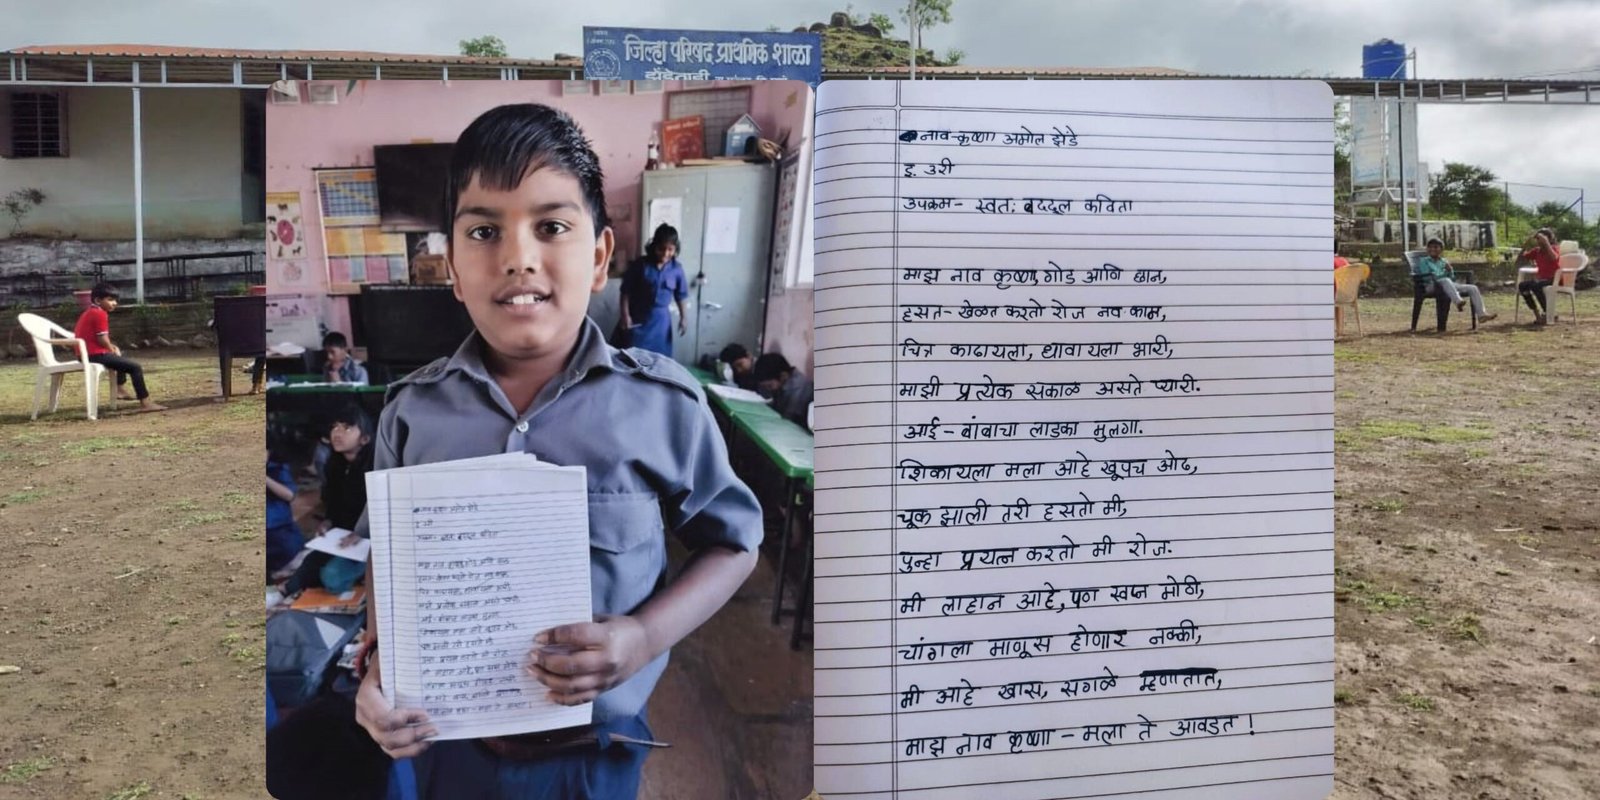 जिल्हा परिषद प्राथमिक शाळा
नाव-कृष्णा अमोल झेंडे
इ. ३री
उपक्रम- स्वत: बददूल कविता
माझ नाव कृष्णा, गोड आणि छान,
हसत-खेळत करतो रोज नव काम,
चित्र काढायला, धावायला भारी,
माझी प्रत्येक सकाळ असते प्यारी.
आई-बांबाचा लाडका मुलगा.
शिकायला मला आहे खूपच ओढ,
चूक झाली तरी हसतो मी,
पुन्हा प्रयत्न करतो मी रोज.
मी लाहान आहे, पण स्वप्न मोठी,
चांगला माणूस होणार नक्की,
मी आहे खास, सगळे म्हणातात,
माझ नाव कृष्णा - मला ते आवडत !